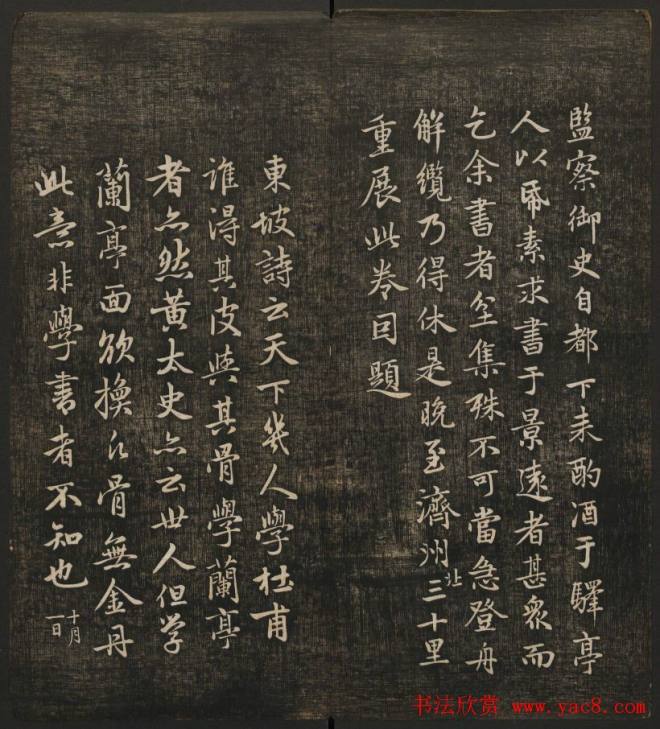 監察御史自都下来酌酒于驛亭
人以帋素求書于景遠者甚衆而
乞余書者坌集殊不可當急登舟
解纜乃得休是晚至濟州北三十里
重展此卷因題
東坡詩云天下幾人學杜甫
誰得其皮與其骨學蘭亭
者亦然黃太史亦云世人但学
蘭亭面欲換凡骨無金丹
此意非學書者不知也十月
一日
书法欣赏 www.yac8.com